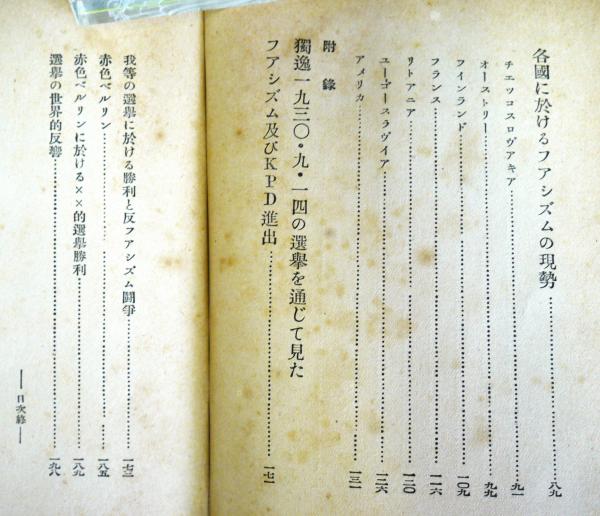 各國に於けるフアシズムの現勢……八九
チエッコスロヴアキア……九一
オーストリー……九九
フインランド……一〇九
フランス……一一六
リトアニア……一二〇
ユーゴースラヴイア……一二六
アメリカ……一三一
附錄
獨逸一九三〇・九・一四の選擧を通じて見た
フアシズム及びKPD進出……一七一
我等の選擧に於ける勝利と反フアシズム鬪爭……一七三
赤色ベルリン……一八五
赤色ベルリンに於ける××的選擧勝利……一八九
選擧の世界的反響……一九八
――目次終――